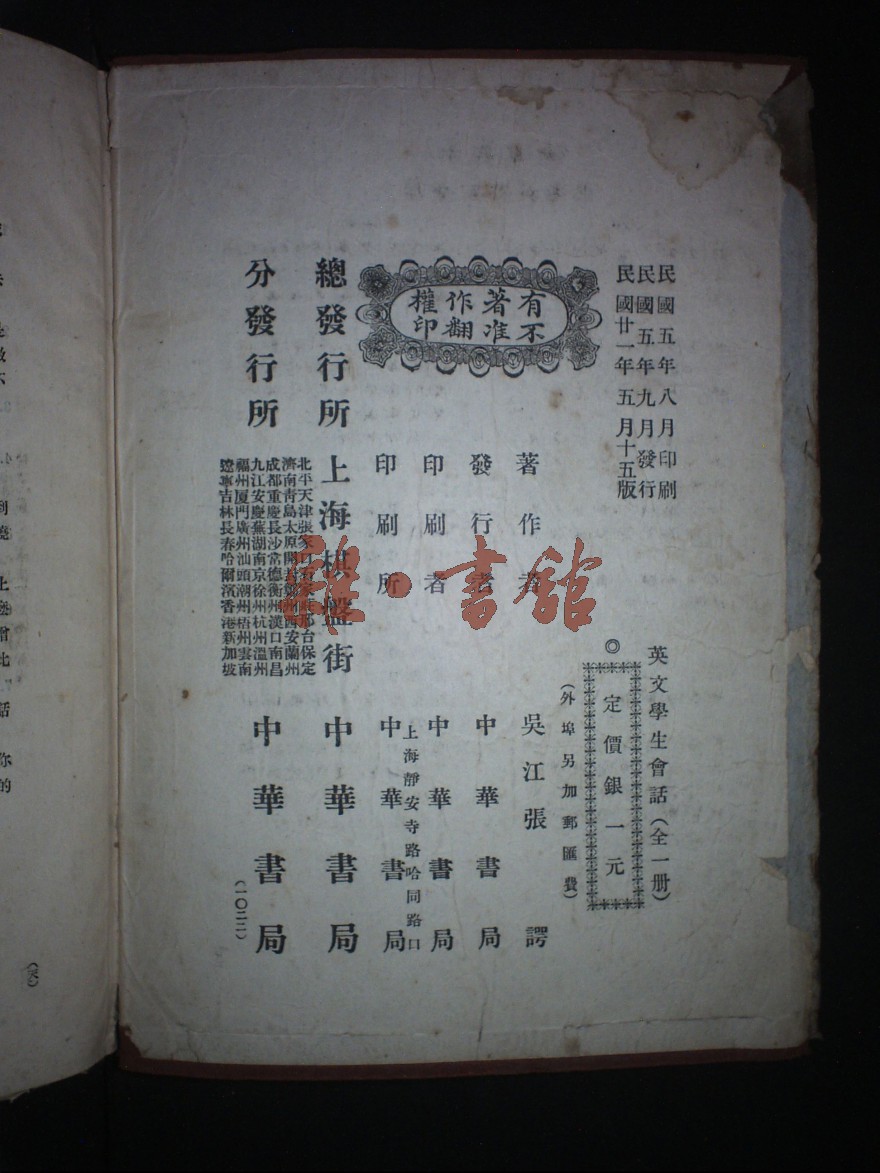 民國五年八月印刷
民國五年九月發行
民國廿一年五月十五版
英文學生會話（全一册）
◎定價銀一元
（外埠另加郵匯費）
有著作權
不准翻印
著作者 吳江張諤
發行者 中華書局
印刷者 中華書局
上海靜安寺路哈同路口
印刷所 中華書局
總發行所 上海棋盤街 中華書局
分發行所
北平天津張家口石家莊邢台保定
濟南青島太原開封鄭州西安蘭州
成都重慶長沙常德衡州漢口南昌
九江安慶蕪湖南京徐州杭州溫州
福州厦門廣州汕頭潮州梧州雲南
遼寧吉林長春哈爾濱香港新加坡
中華書局
（一〇二二）
雅·書館